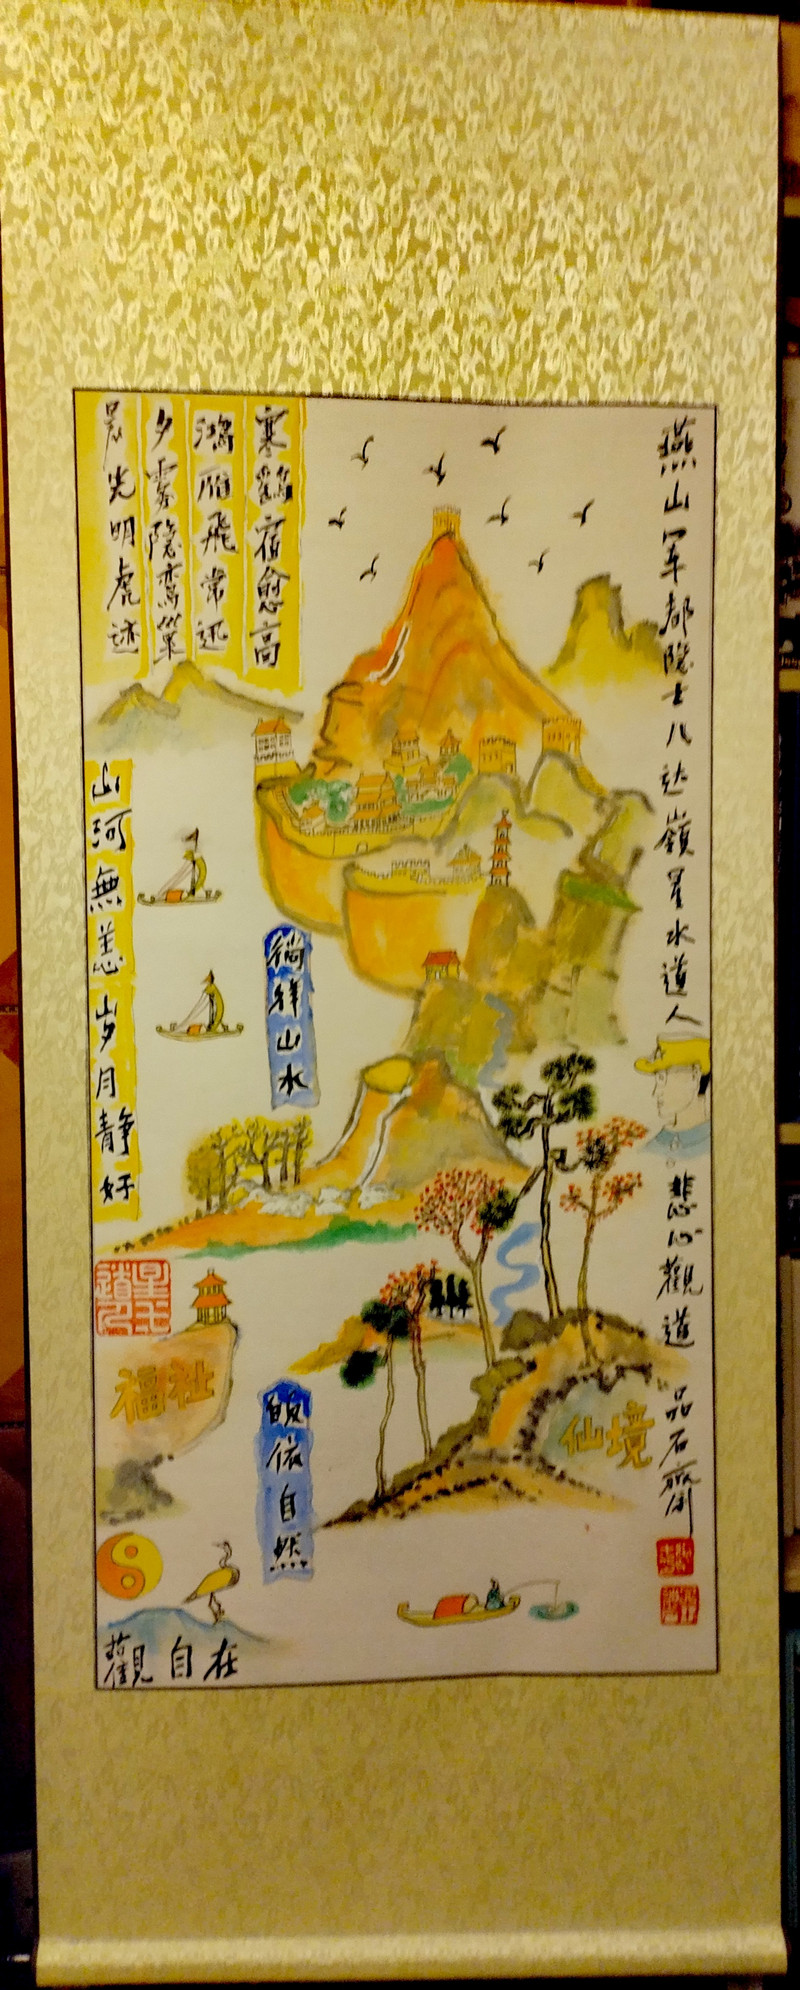 寒鶴宿愈高
鴻雁飛常迅
夕霧隱鸞巢
晨光明虎迹
燕山军都隐士八达嶺星水道人
悲心觀道
品石齋
山河無恙岁月静好
徜徉山水
皈依自然
福祉
仙境
觀自在